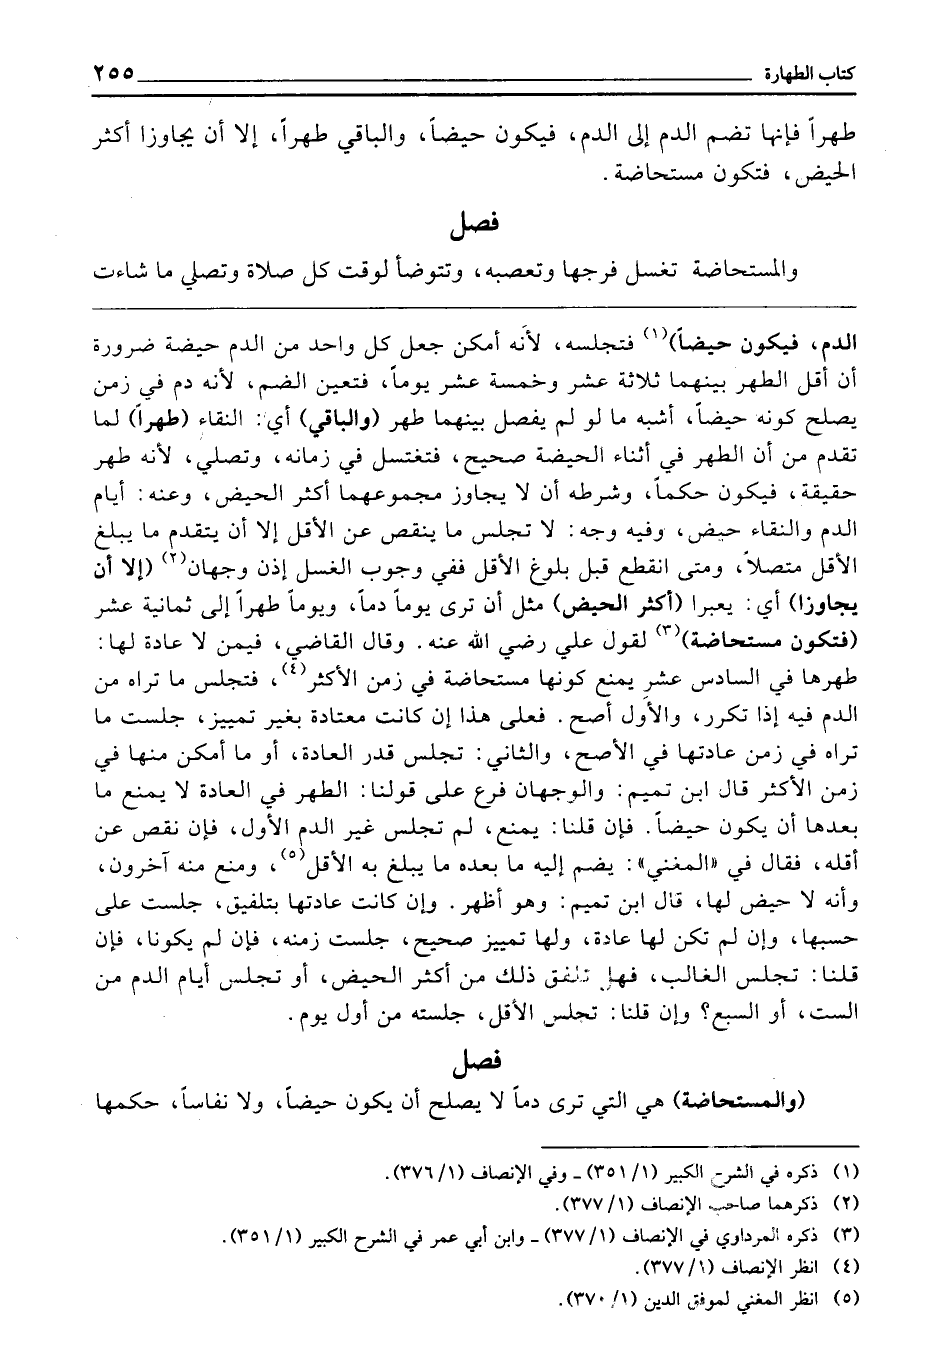 كتاب الطهارة ٢٥٥
طهراً فإنها تضم الدم إلى الدم، فيكون حيضاً، والباقي طهراً، إلا أن يجاوزا أكثر
الحيض، فتكون مستحاضة.
فصل
والمستحاضة تغسل فرجها وتعصبه، وتتوضأ لوقت كل صلاة وتصلي ما شاءت
الدم، فيكون حيضاً)(١) فتجلسه، لأنه أمكن جعل كل واحد من الدم حيضة ضرورة
أن أقل الطهر بينهما ثلاثة عشر وخمسة عشر يوماً، فتعين الضم، لأنه دم في زمن
يصلح كونه حيضاً، أشبه ما لو لم يفصل بينهما طهر (والباقي) أي: النقاء (طهراً) لما
تقدم من أن الطهر في أثناء الحيضة صحيح، فتغتسل في زمانه، وتصلي، لأنه طهر
حقيقة، فيكون حكماً، وشرطه أن لا يجاوز مجموعهما أكثر الحيض، وعنه: أيام
الدم والنقاء حيض، وفيه وجه: لا تجلس ما ينقص عن الأقل إلا أن يتقدم ما يبلغ
الأقل متصلاً، ومتى انقطع قبل بلوغ الأقل ففي وجوب الغسل إذن وجهان(٢) (إلا أن
يجاوزا) أي: يعبرا (أكثر الحيض) مثل أن ترى يوماً دماً، ويوماً طهراً إلى ثمانية عشر
(فتكون مستحاضة)(٣) لقول علي رضي الله عنه. وقال القاضي، فيمن لا عادة لها:
طهرها في السادس عشر يمنع كونها مستحاضة في زمن الأكثر(٤)، فتجلس ما تراه من
الدم فيه إذا تكرر، والأول أصح. فعلى هذا إن كانت معتادة بغير تمييز، جلست ما
تراه في زمن عادتها في الأصح، والثاني: تجلس قدر العادة، أو ما أمكن منها في
زمن الأكثر قال ابن تميم: والوجهان فرع على قولنا: الطهر في العادة لا يمنع ما
بعدها أن يكون حيضاً. فإن قلنا: يمنع، لم تجلس غير الدم الأول، فإن نقص عن
أقله، فقال في «المغني»: يضم إليه ما بعده ما يبلغ به الأقل(٥)، ومنع منه آخرون،
وأنه لا حيض لها، قال ابن تميم: وهو أظهر. وإن كانت عادتها بتلفيق، جلست على
حسبها، وإن لم تكن لها عادة، ولها تمييز صحيح، جلست زمنه، فإن لم يكونا، فإن
قلنا: تجلس الغالب، فهل تلفق ذلك من أكثر الحيض، أو تجلس أيام الدم من
الست، أو السبع؟ وإن قلنا: تجلس الأقل، جلسته من أول يوم.
فصل
(والمستحاضة) هي التي ترى دماً لا يصلح أن يكون حيضاً، ولا نفاساً، حكمها
(١) ذكره في الشرح الكبير (٣٥١/١) - وفي الإنصاف (٣٧٦/١).
(٢) ذكرهما صاحب الإنصاف (٣٧٧/١).
(٣) ذكره المرداوي في الإنصاف (٣٧٧/١) - وابن أبي عمر في الشرح الكبير (٣٥١/١).
(٤) انظر الإنصاف (٣٧٧/١).
(٥) انظر المغني لموفق الدين (٣٧٠/١).